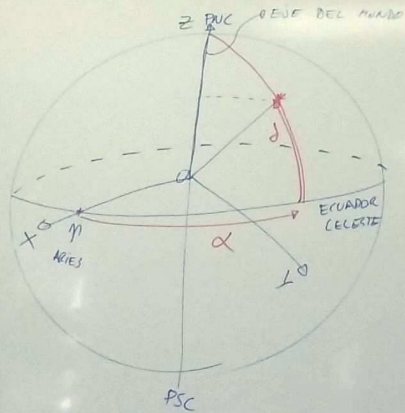 Z PNC
O EJE DEL MUNDO
δ
ECUADOR
CELESTE
X
ARIES
α
PSC